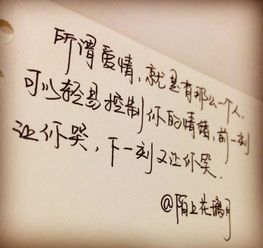 所谓爱情，就是有那么一个人.
可以轻易控制你的情绪，前一刻
让你哭，下一刻又让你笑.
@陌上花璃月